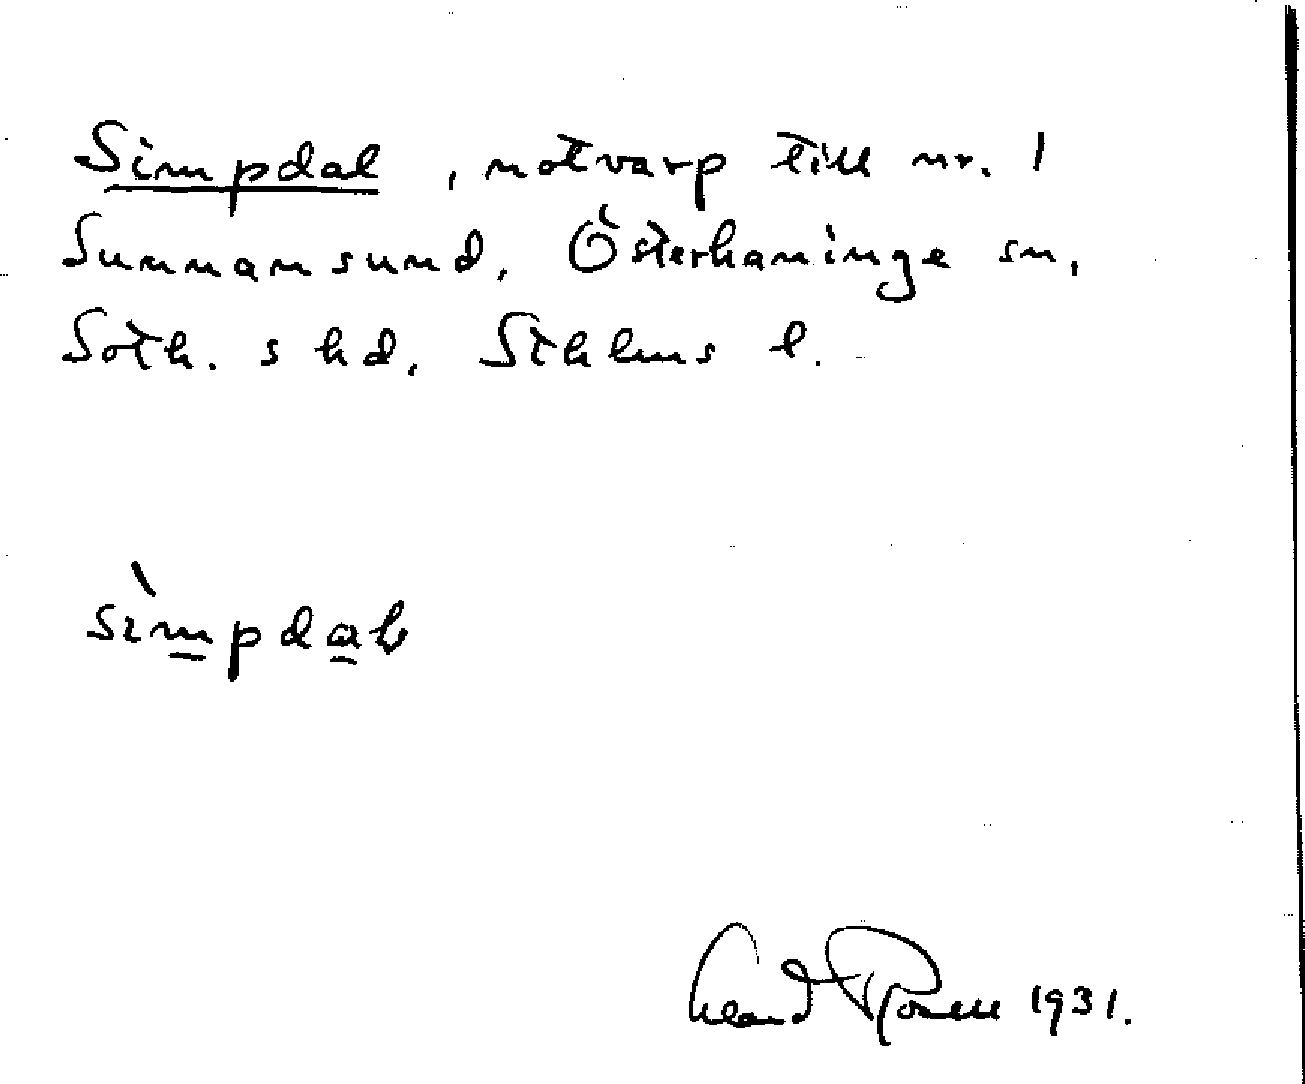 Simpdal, notvarp till nr. 1
Sunnansund, Österhaninge sn,
Soth. s hd, Sthlms l.
sìmpdaɫ
Rosell 1931.